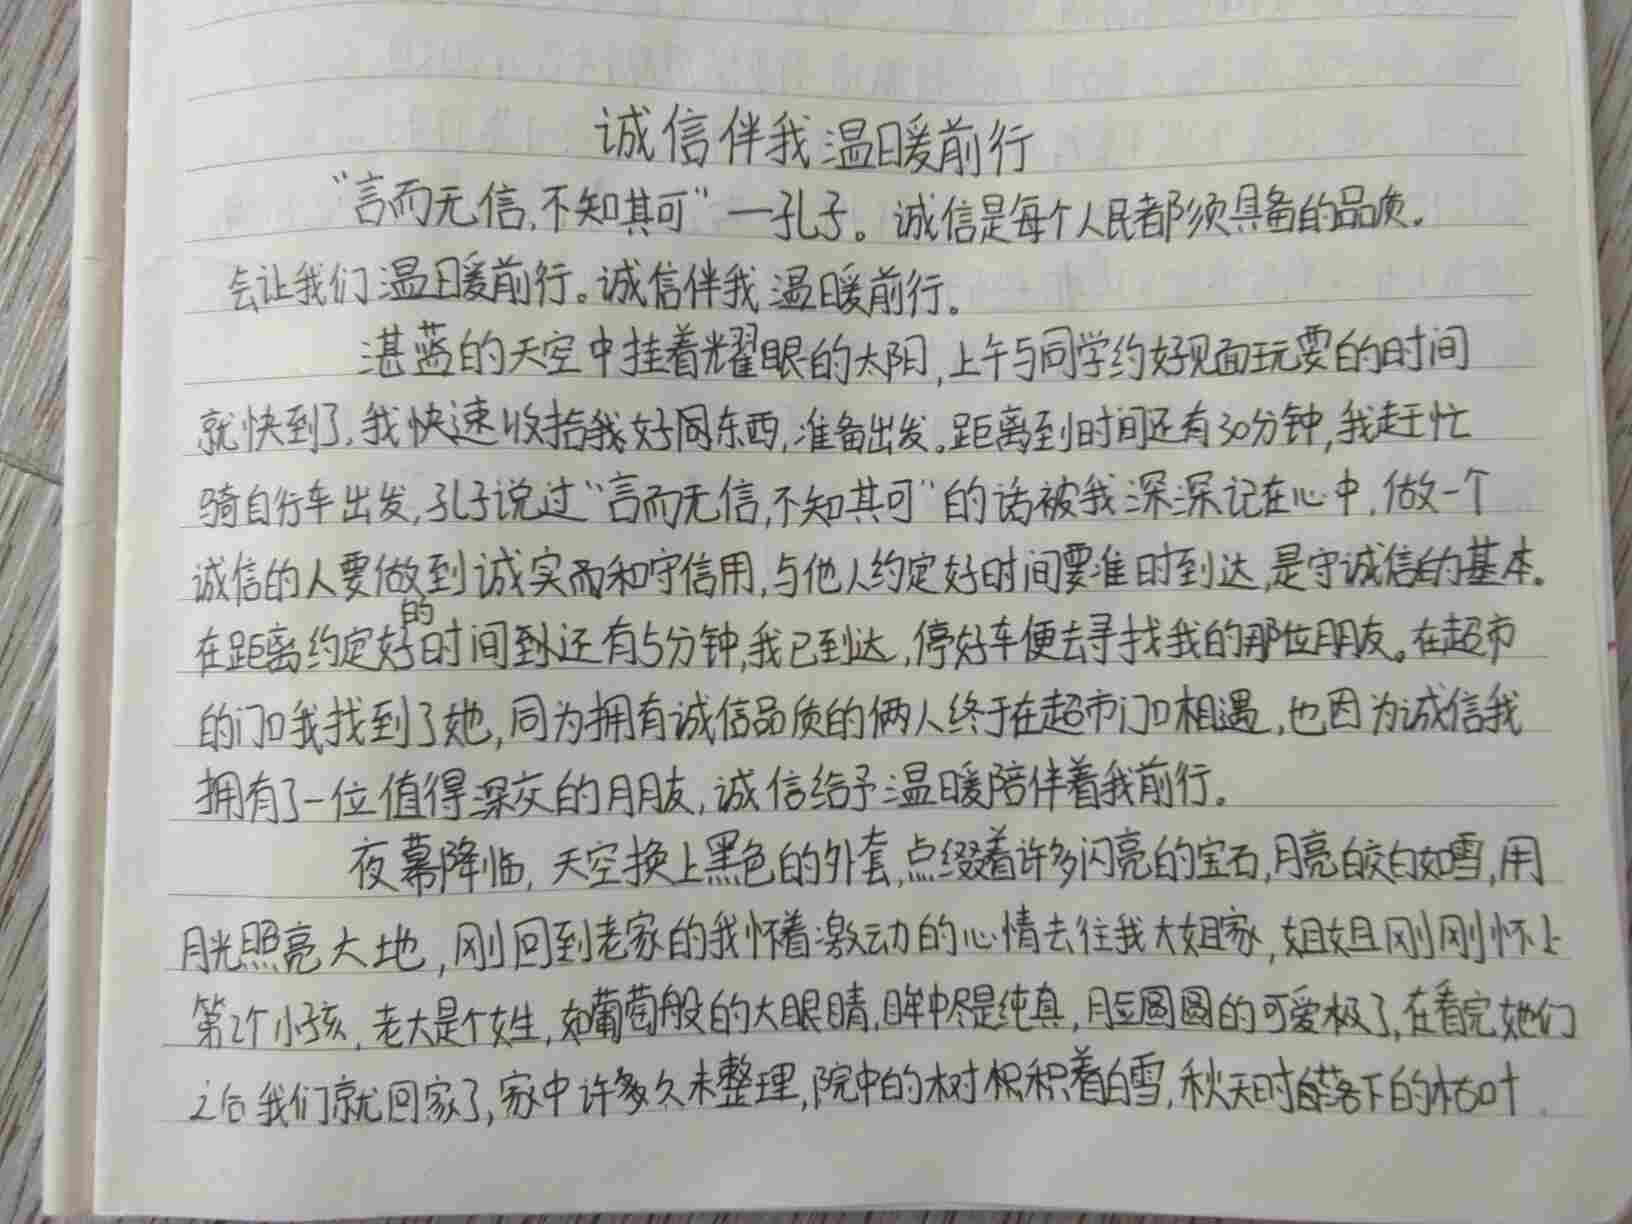 诚信伴我温暖前行
“言而无信,不知其可”—孔子。诚信是每个人民都须具备的品质。
会让我们温暖前行。诚信伴我温暖前行。
湛蓝的天空中挂着耀眼的太阳,上午与同学约好见面玩耍的时间
就快到了,我快速收拾我好同东西,准备出发。距离到时间还有30分钟,我赶忙
骑自行车出发,孔子说过“言而无信,不知其可”的话被我深深记在心中,做一个
诚信的人要做到诚实而和守信用,与他人约定好时间要准时到达,是守诚信的基本。
在距离约定好的时间到还有5分钟,我已到达,停好车便去寻找我的那位朋友。在超市
的门口我找到了她,同为拥有诚信品质的俩人终于在超市门口相遇,也因为诚信我
拥有了一位值得深交的朋友,诚信给予温暖陪伴着我前行。
夜幕降临,天空换上黑色的外套,点缀着许多闪亮的宝石,月亮皎白如雪,用
月光照亮大地,刚回到老家的我怀着激动的心情去往我大姐家,姐姐刚刚怀上
第2个小孩,老大是个女生,如葡萄般的大眼睛,眸中尽是纯真,脸圆圆的可爱极了,在看完她们
之后我们就回家了,家中许多久未整理,院中的树枳积着白雪,秋天时落下的枯叶